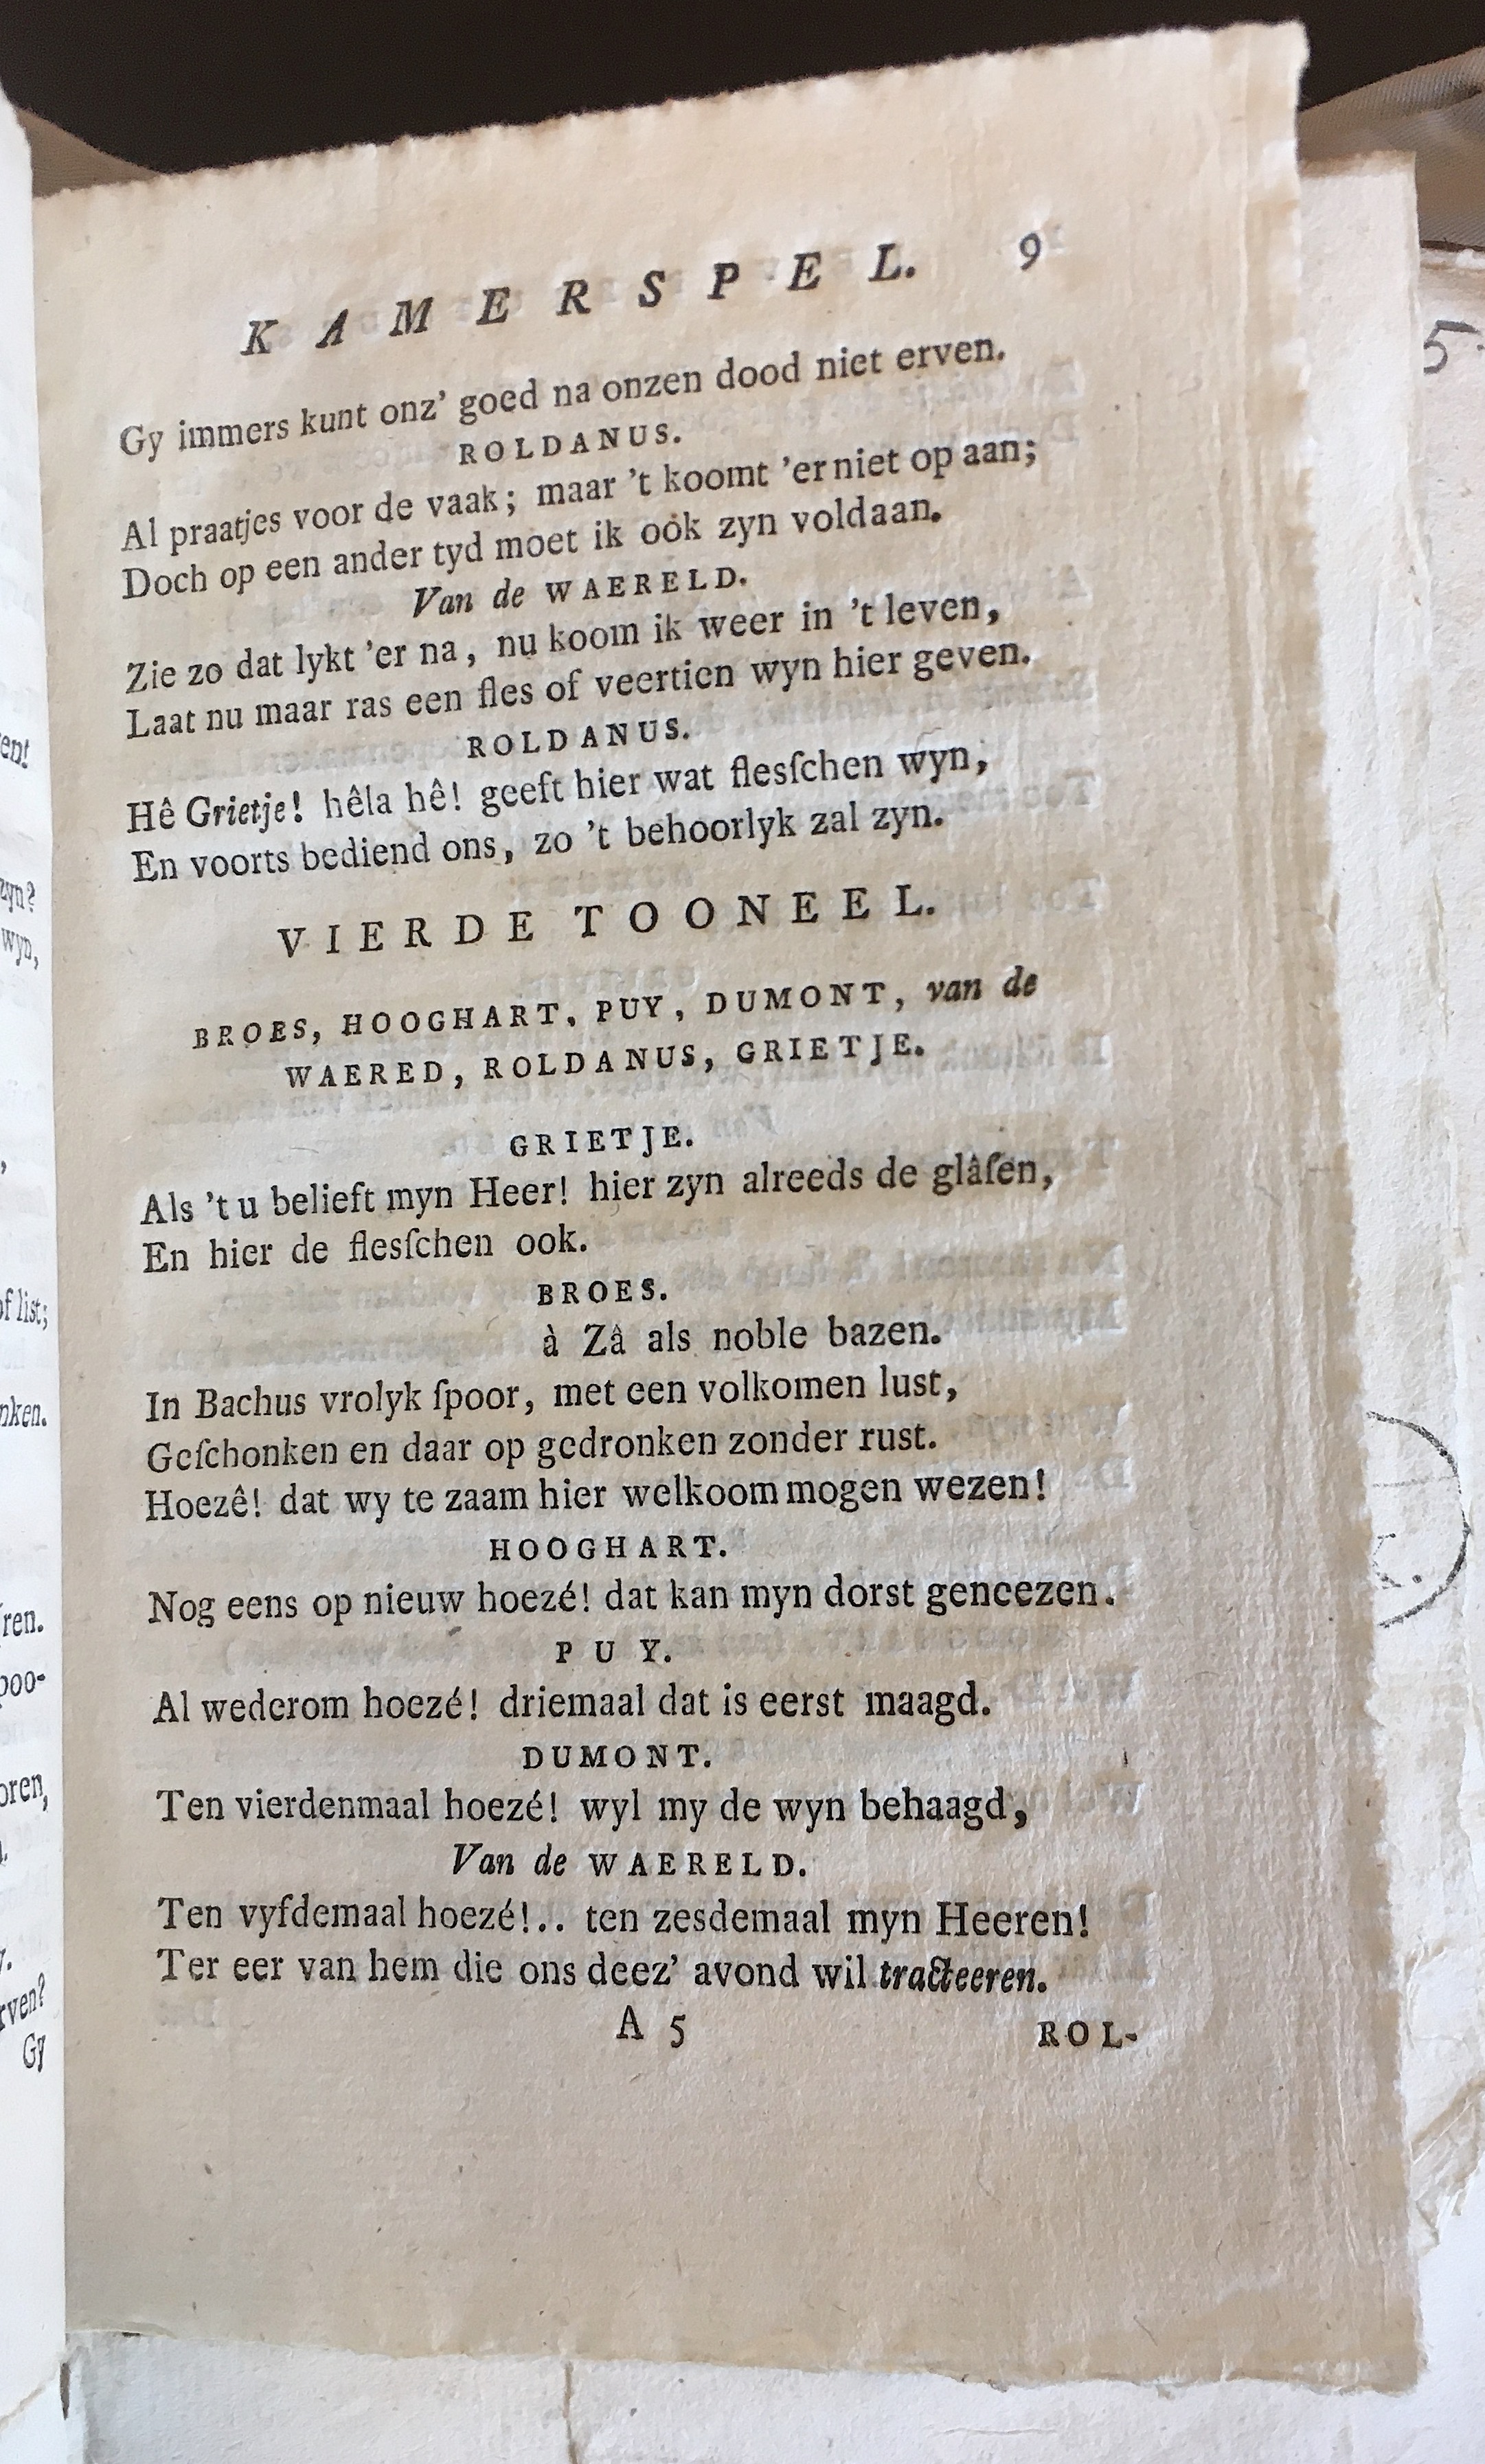 KAMERSPEL. 9
Gy immers kunt onz' goed na onzen dood niet erven.
ROLDANUS.
Al praatjes voor de vaak; maar 't koomt 'er niet op aan;
Doch op een ander tyd moet ik ook zyn voldaan.
Van de WAERELD.
Zie zo dat lykt 'er na, nu koom ik weer in 't leven,
Laat nu maar ras een fles of veertien wyn hier geven.
ROLDANUS.
Hê Grietje! hêla hê! geeft hier wat flesſchen wyn,
En voorts bediend ons, zo 't behoorlyk zal zyn.
VIERDE TOONEEL.
BROES, HOOGHART, PUY, DUMONT, van de
WAERED, ROLDANUS, GRIETJE.
GRIETJE.
Als 't u belieft myn Heer! hier zyn alreeds de glâſen,
En hier de flesſchen ook.
BROES.
à Zâ als noble bazen.
In Bachus vrolyk ſpoor, met een volkomen lust,
Geſchonken en daar op gedronken zonder rust.
Hoezê! dat wy te zaam hier welkoom mogen wezen!
HOOGHART.
Nog eens op nieuw hoezé! dat kan myn dorst geneezen.
PUY.
Al wederom hoezé! driemaal dat is eerst maagd.
DUMONT.
Ten vierdenmaal hoezé! wyl my de wyn behaagd,
Van de WAERELD.
Ten vyfdemaal hoezé!.. ten zesdemaal myn Heeren!
Ter eer van hem die ons deez' avond wil tracteeren.
A 5 ROL-
en!
zyn?
wyn,
of list;
nken.
ren.
poo-
oren,
rven?
Gy
5.